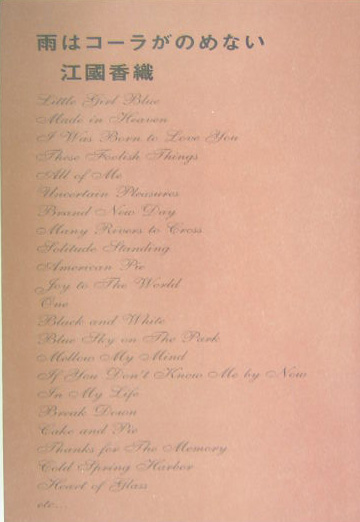 雨はコーラがのめない
江國香織
Little Girl Blue
Made in Heaven
I Was Born to Love You
These Foolish Things
All of Me
Uncertain Pleasures
Brand New Day
Many Rivers to Cross
Solitude Standing
American Pie
Joy to The World
One
Black and White
Blue Sky on The Park
Mellow My Mind
If You Don't Know Me by Now
In My Life
Break Down
Cake and Pie
Thanks for The Memory
Cold Spring Harbor
Heart of Glass
etc...